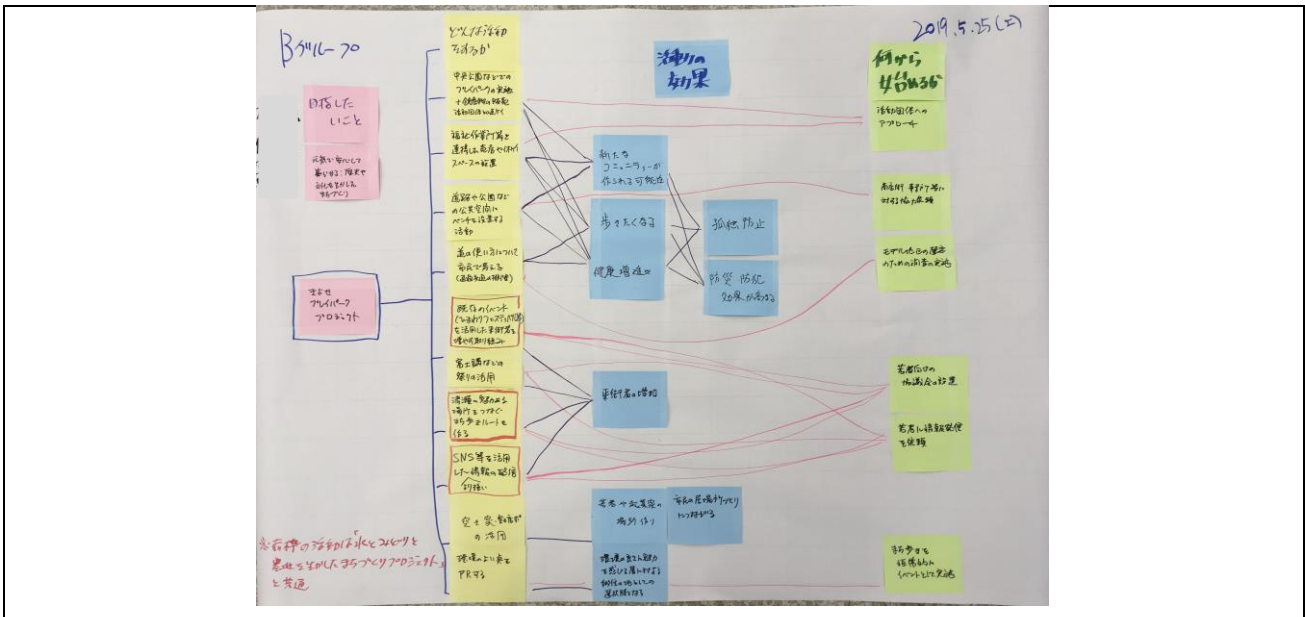 Bグループ
2019.5.25(土)
目指した
いこと
元気で安心して
暮らせる、歴史や
文化を生かした
まちづくり
きよせ
プレイパーク
プロジェクト
どんな活動
をするか
中央公園などでの
プレイパークの実施
福祉作業所等と
連携した売店や休けい
スペースの設置
道路や公園など
の公共空間に
ベンチを設置する
活動
道の使い方について
市民で考える
既存のイベント
(ひまわりフェスティバル等)
を活用した来街者を
増やす取り組み
富士講などの
祭りの活用
清瀬の魅力ある
場所をつなぐ
まち歩きルートを
作る
SNS等を活用
した情報の発信
より強い
空き家・空き店舗
の活用
環境のよい点を
PRする
活動の
効果
新たな
コミュニティーが
作られる可能性
歩きたくなる
健康増進
孤独防止
防災・防犯
効果が高まる
来街者の増加
若者や起業家の
場所作り
市民の居場所づくり
につながる
選択肢となる
何から
始めるか
活動団体への
アプローチ
商店街・事業所等に
対する協力依頼
モデル地区の選定
のための調査の実施
若者向けの
協議会の設置
若者に情報発信
を依頼
まち歩きを
イベントとして実施
※赤枠の活動は「水とみどりと
農地を生かしたまちづくりプロジェクト」
と共通